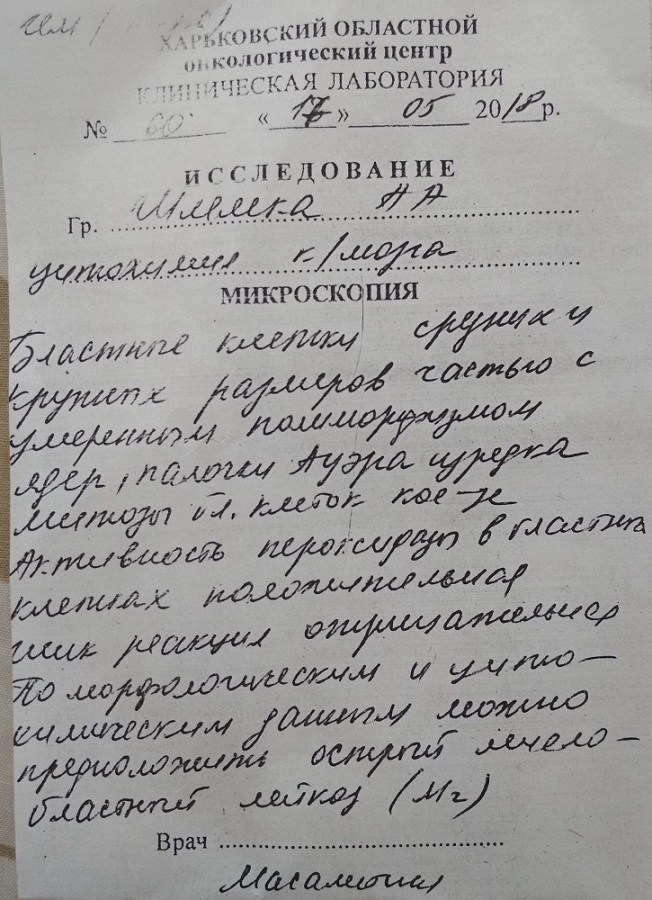 ХАРЬКОВСКИЙ ОБЛАСТНОЙ
онкологический центр
КЛИНИЧЕСКАЯ ЛАБОРАТОРИЯ
№ 60 «17» 05 2018р.
ИССЛЕДОВАНИЕ
Гр. НА
цитохимия к/мозга
МИКРОСКОПИЯ
Бластные клетки средних и
крупных размеров частью с
умеренным полиморфизмом
ядер, палочки Ауэра изредка
митозы бл. клеток
Активность пероксидазы в бластных
клетках положительная
шик реакция отрицательная
По морфологическим и цито-
химическим данным можно
предположить острый миело-
бластный лейкоз
Врач